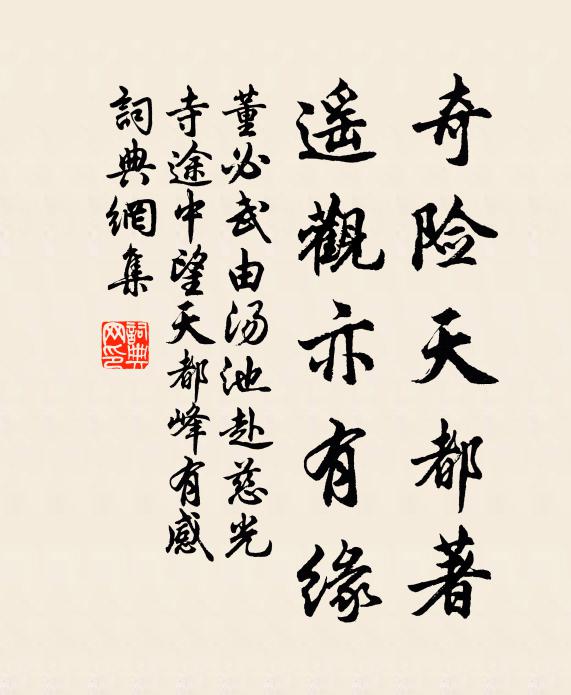 奇险天都著
遥觀亦有缘
董必武由汤池赴慈光
寺途中望天都峰有感
詞典網集
詞典网印